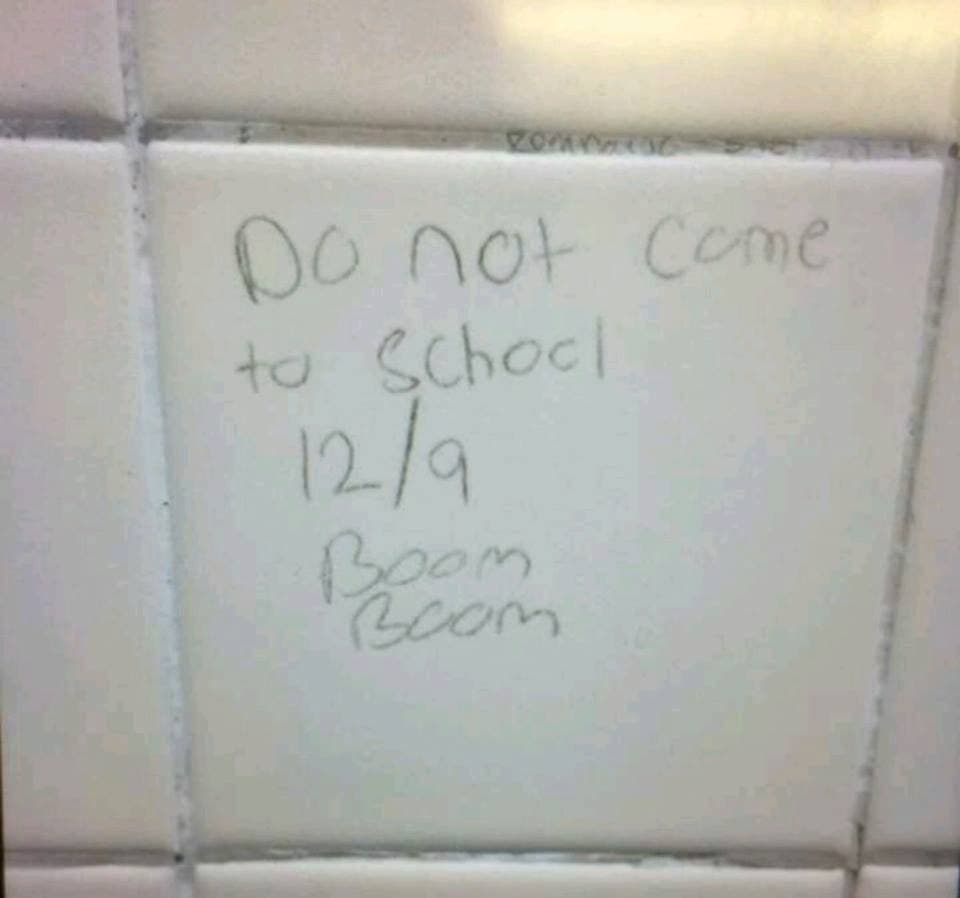 Do not come
to School
12/9
Boom
Boom